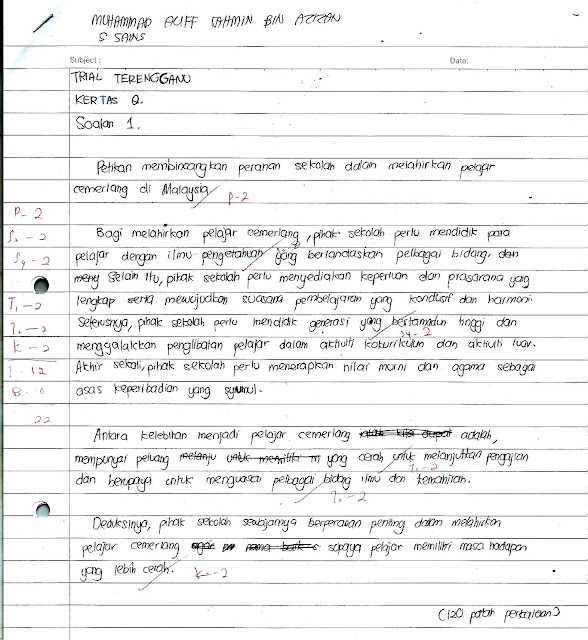 MUHAMMAD ALIFF FAHMIN BIN AZIZAN
5 SAINS
Subject :
Date:
TRIAL TERENGGANU
KERTAS 2.
Soalan 1.
Petikan membincangkan peranan sekolah dalam melahirkan pelajar
cemerlang di Malaysia.
P-2
P- 2
Bagi melahirkan pelajar cemerlang, pihak sekolah perlu mendidik para
pelajar dengan ilmu pengetahuan yang berlandaskan pelbagai bidang. dan
meny Selain itu, pihak sekolah perlu menyediakan keperluan dan prasarana yang
lengkap serta mewujudkan suasana pembelajaran yang kondusif dan harmoni.
Seterusnya, pihak sekolah perlu mendidik generasi yang bertamadun tinggi dan
menggalakkan penglibatan pelajar dalam aktiviti kokurikulum dan aktiviti luar.
Akhir sekali, pihak sekolah perlu menerapkan nilai murni dan agama sebagai
asas keperibadian yang syumul.
K - 2
22
Antara kelebihan menjadi pelajar cemerlang adalah,
mempunyai peluang yang cerah untuk melanjutkan pengajian
dan berupaya untuk menguasai pelbagai bidang ilmu dan kemahiran.
Deduksinya, pihak sekolah sewajarnya berperanan penting dalam melahirkan
pelajar cemerlang supaya pelajar memiliki masa hadapan
yang lebih cerah.
K-2
(120 patah perkataan)